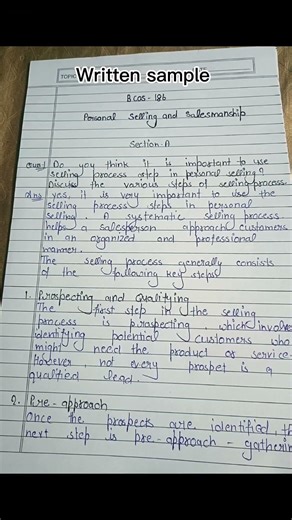 Written sample
TOPIC
BCOS-186
Personal Selling and Salesmanship
Section-A
Que1 Do you think it is important to use
selling process step in personal selling?
Discuss the various steps of selling process.
Ans yes, it is very important to use the
selling process steps in personal
selling. A systematic selling process
helps a salesperson approach customers
in an organized and professional
manner.
The selling process generally consists
of the following key steps
1. Prospecting and Qualifying
The first step in the selling
process is prospecting, which involves
identifying potential customers who
might need the product or service.
However, not every prospet is a
qualified lead.
2. Pre-approach
Once the prospects are identified, th
next step is pre-approach - gatherin